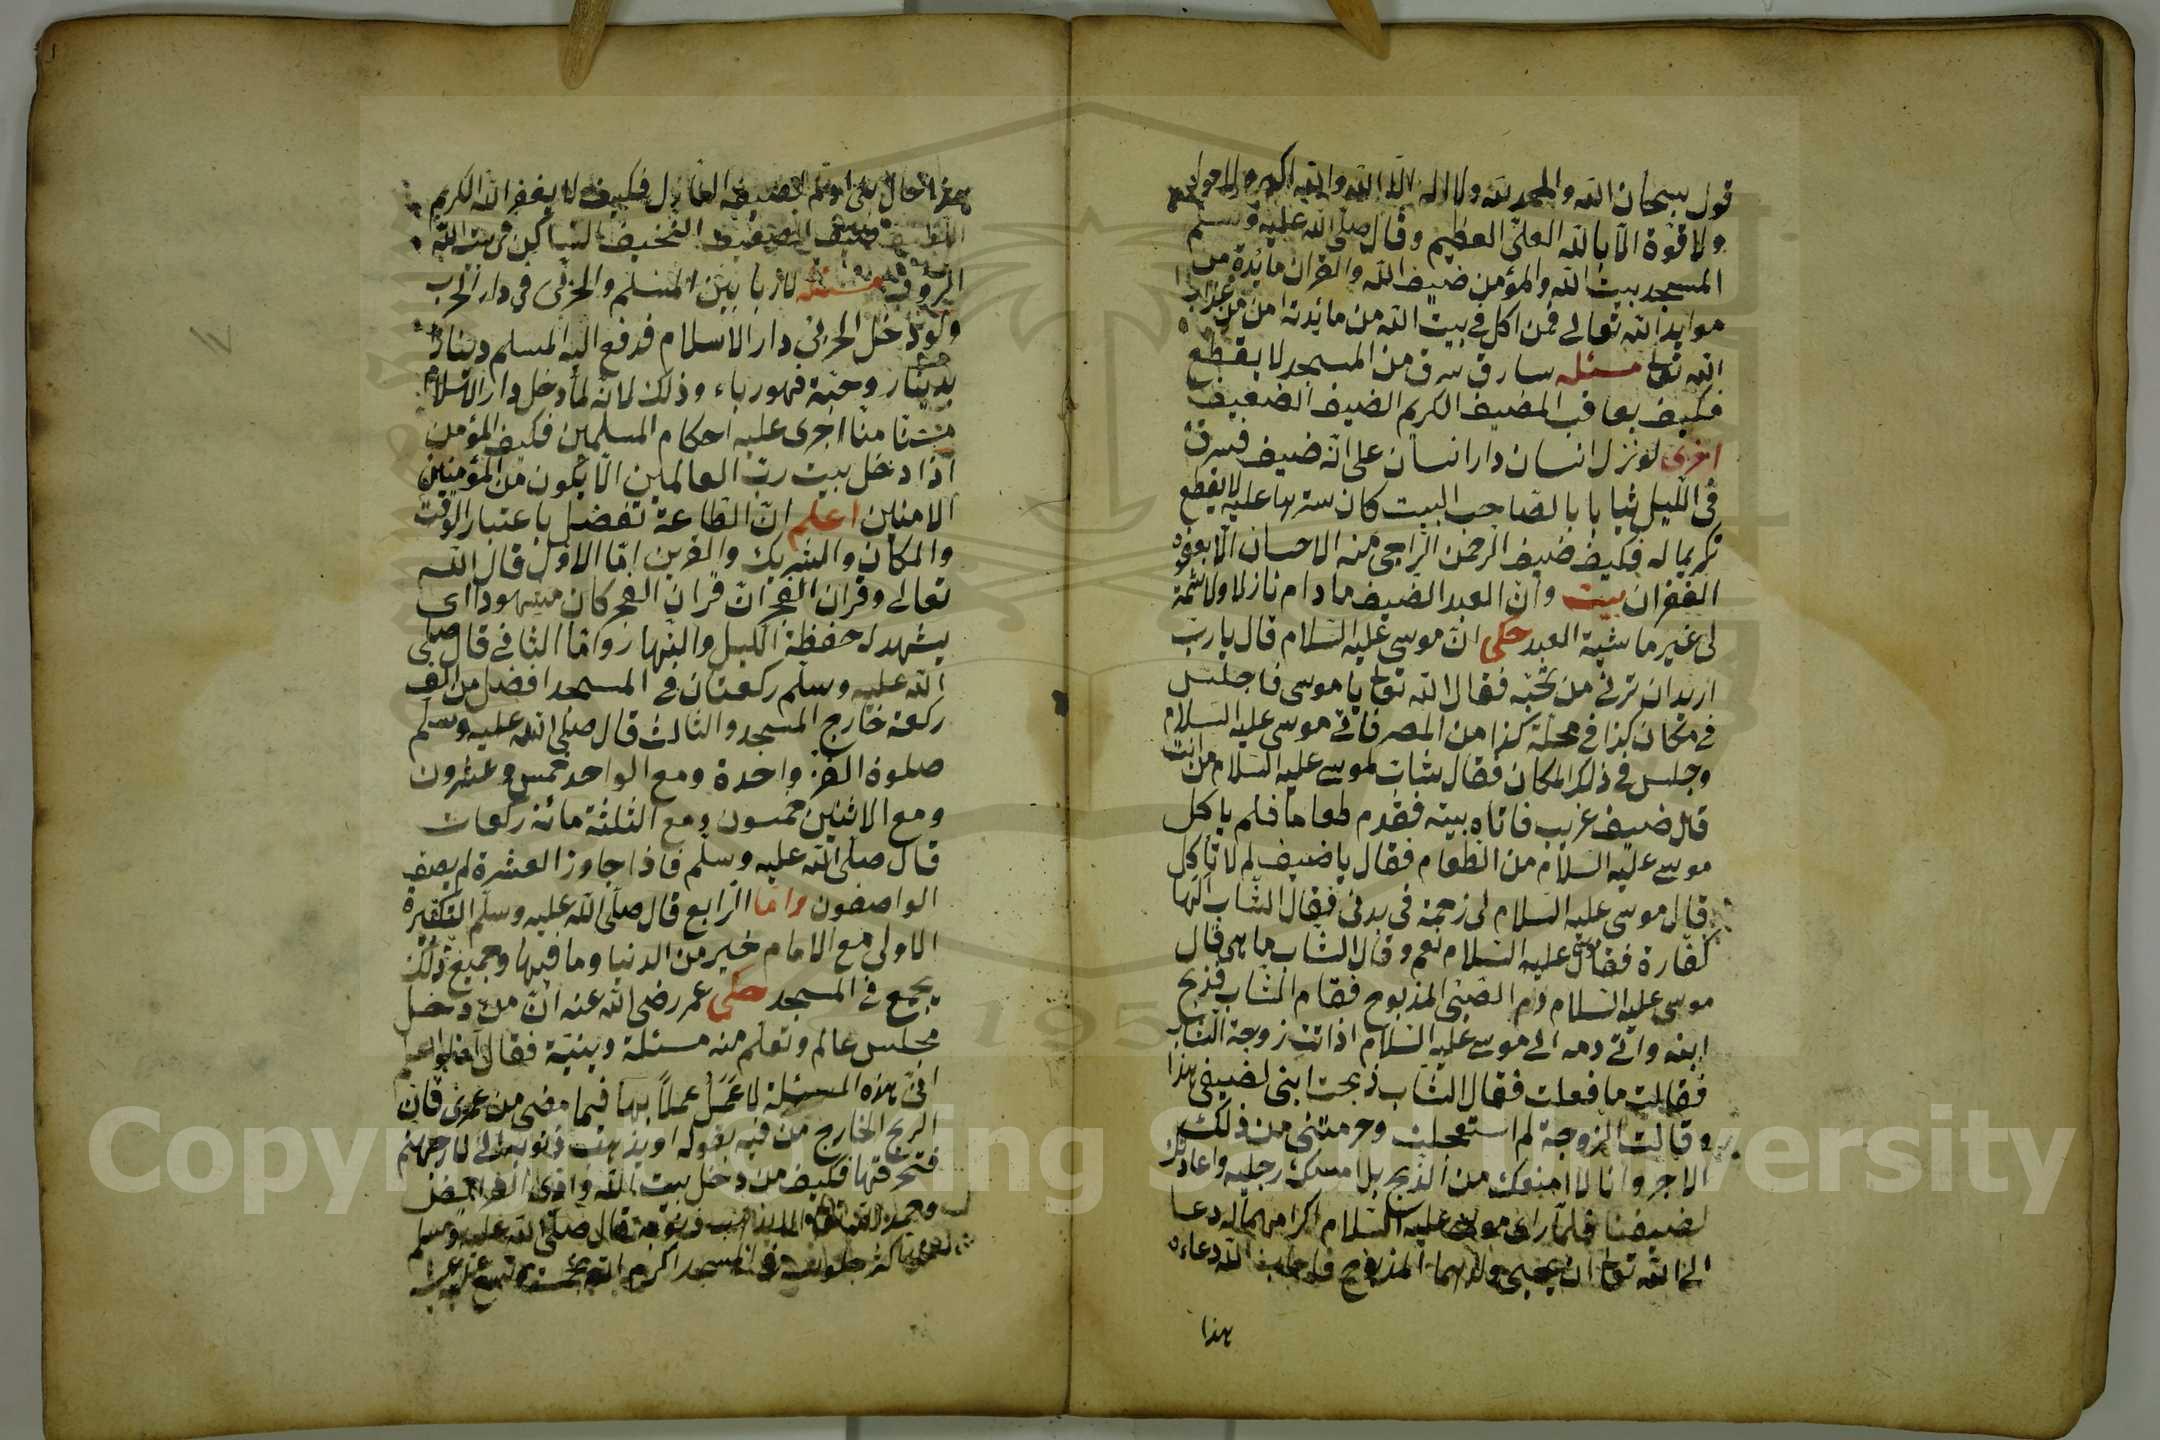 قول سبحان الله والحمد لله ولا اله الا الله والله اكبر ولا حول
ولا قوة الا بالله العلى العظيم وقال صلى الله عليه وسلم
المسجد بيت الله والمؤمن ضيف الله والقران مائدة من
موايد الله تعالى فمن اكل فى بيت الله من مائدته امن من عذاب
الله تعالى مسئله سارق سرق من المسجد لا يقطع
فكيف يعاقب المضيف الكريم الضيف الضعيف
اخرى لو نزل انسان دار انسان على انه ضيف فسرق
فى الليل ثيابا بالصاحب البيت كان سترها عليه لا يقطع
تكريما له فكيف ضيف الرحمن الراجى منه الاحسان الا بعفوه
الغفران بيت وان العبد الضيف ما دام نازلا ولا شمة
لى غير ما شية العبد حكى ان موسى عليه السلام قال يا رب
اريد ان ترنى من تحبه فقال الله تعالى يا موسى فاجلس
فى مكان كذا فى محلة كذا من المصر فاتى موسى عليه السلام
وجلس فى ذلك المكان فقال شاب لموسى عليه السلام من انت
قال ضيف غريب فاتاه بيته فقدم طعاما فلم ياكل
موسى عليه السلام من الطعام فقال يا ضيف لم لا تاكل
قال موسى عليه السلام لى زحمة فى بدنى فقال الشاب الها
كفارة فقال موسى عليه السلام نعم وقال الشاب ما هى قال
موسى عليه السلام دم الصبى المذبوح فقام الشاب فذبح
ابنه واتى دمه الى موسى عليه السلام اذ اتت زوجة الشاب
فقالت ما فعلت فقال الشاب ذبحت ابنى لضيفى هذا
وقالت الزوجة لم استعجلت وحرمتنى من ذلك
الاجر وانا لا امنعك من الذبح بل امسك رجليه واعاد
لضيفنا فلما راى موسى عليه السلام اكرامهما له دعا
الى الله تعالى ان يحيى ولدهما المذبوح فاجاب الله دعاءه
هذا
فكيف لا يغفر الله الكريم
الضعيف
الرؤف مسئله لا ربا بين المسلم والحربى فى دار الحرب
ولو دخل الحربى دار الاسلام فدفع اليه المسلم دينارا
بدينار وحبة فهو رباء وذلك لانه لما دخل دار الاسلام
مستامنا اجرى عليه احكام المسلمين فكيف المؤمن
اذا دخل بيت رب العالمين الا يكون من المؤمنين
الامنين اعلم ان الطاعة تفضل باعتبار الوقت
والمكان والشريك والقرين اما الاول قال الله
تعالى وقران الفجر ان قران الفجر كان مشهودا اى
يشهد له حفظة الليل والنهار واما الثانى قال صلى
الله عليه وسلم ركعتان فى المسجد افضل من الف
ركعة خارج المسجد والثالث قال صلى الله عليه وسلم
صلوة الفرد واحدة ومع الواحد خمس وعشرون
ومع الاثنين خمسون ومع الثلثة مائة ركعات
قال صلى الله عليه وسلم فاذا جاوز العشرة لم يصف
الواصفون واما الرابع قال صلى الله عليه وسلم التكبيرة
الاولى مع الامام خير من الدنيا وما فيها وجميع ذلك
يجمع فى المسجد حكى عمر رضى الله عنه ان من دخل
مجلس عالم وتعلم منه مسئلة دينية فقال
هذه المسئلة لا عمل عملا بها فيما مضى من عمرى فان
الريح الخارج من فيه بقوله او يذهب ذنوبه الى نار جهنم
فتحرقها فكيف من دخل بيت الله
قال صلى الله عليه وسلم